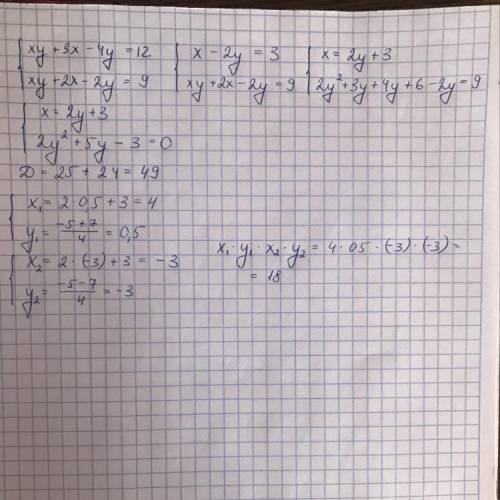 { xy + 3x - 4y = 12   { x - 2y = 3   { x = 2y + 3
{ xy + 2x - 2y = 9   { xy + 2x - 2y = 9   { 2y² + 3y + 4y + 6 - 2y = 9
{ x = 2y + 3
{ 2y² + 5y - 3 = 0
D = 25 + 24 = 49
{ x₁ = 2 · 0,5 + 3 = 4
{ y₁ = (-5 + 7)/4 = 0,5
{ x₂ = 2 · (-3) + 3 = -3
{ y₂ = (-5 - 7)/4 = -3
x₁ · y₁ · x₂ · y₂ = 4 · 05 · (-3) · (-3) =
= 18